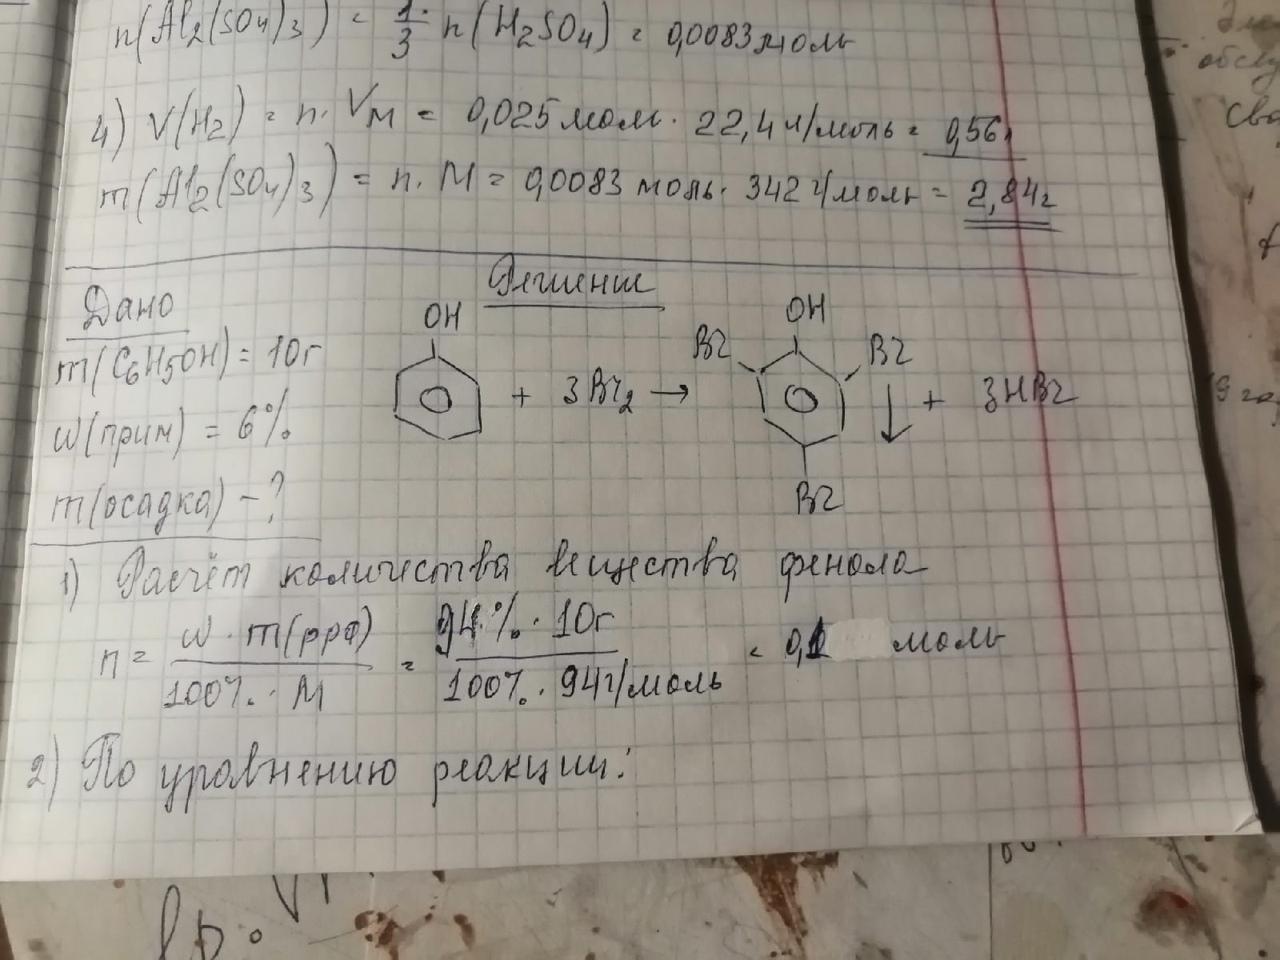 n(Al₂(SO₄)₃) = 1/3 n(H₂SO₄) = 0,0083 моль
4) V(H₂) = n · Vм = 0,025 моль · 22,4 л/моль = 0,56 л
m(Al₂(SO₄)₃) = n · M = 0,0083 моль · 342 г/моль = 2,84 г
Дано
Решение
m(C₆H₅OH) = 10г
w(прим) = 6%
m(осадка) - ?
OH
+ 3Br₂ →
OH
Br
Br
Br
↓ + 3HBr
1) Расчёт количества вещества фенола
n = w · m(рра) / 100% · M = 94% · 10г / 100% · 94г/моль = 0,1 моль
2) По уровнению реакции:
обслу